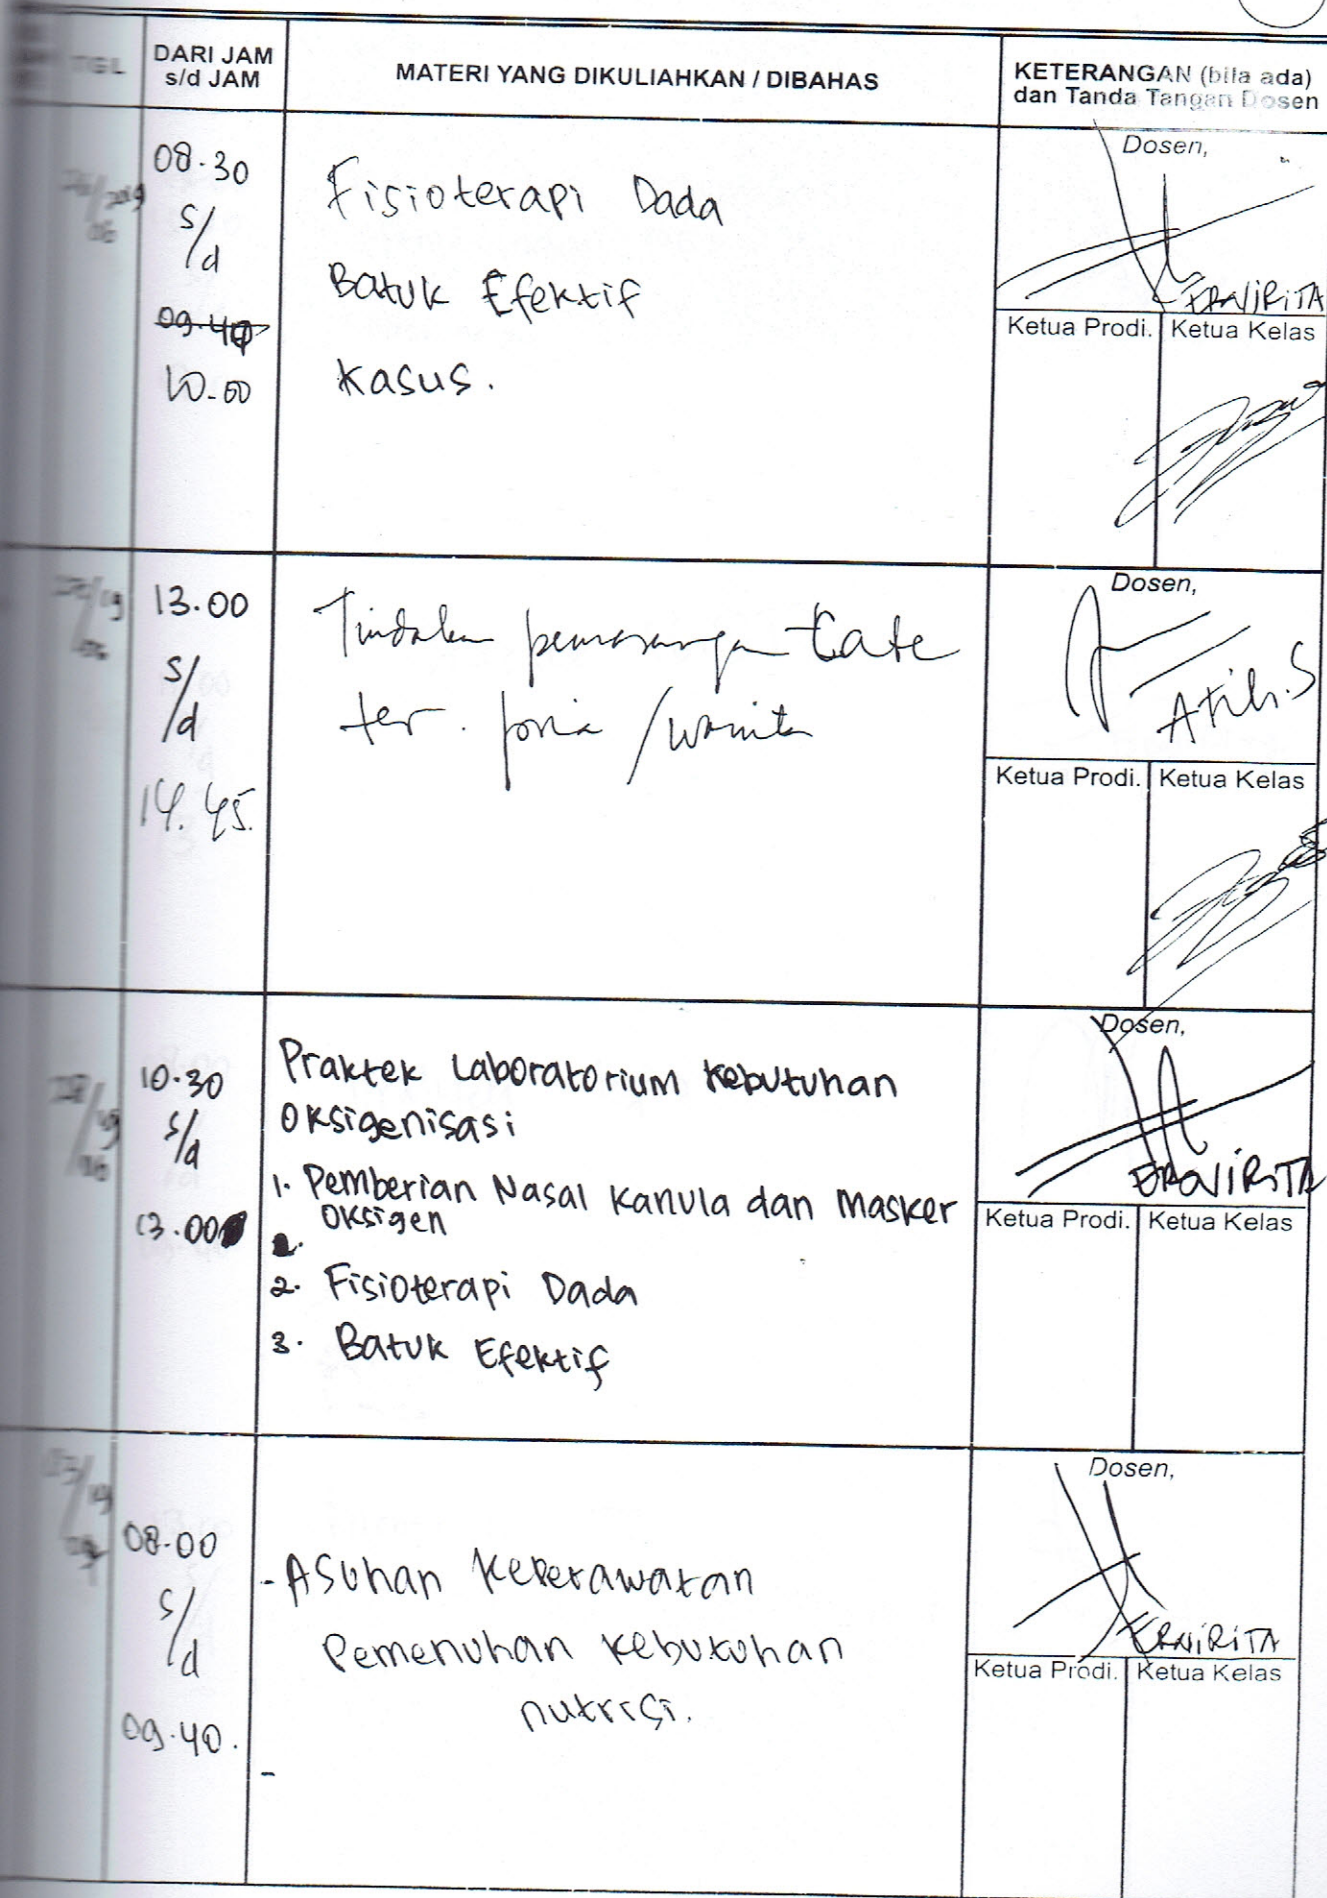 TGL
DARI JAM
s/d JAM
MATERI YANG DIKULIAHKAN / DIBAHAS
KETERANGAN (bila ada)
dan Tanda Tangan Dosen
08.30
s/d
09.40
10.00
Fisioterapi Dada
Batuk Efektif
Kasus.
Dosen,
ERNIRITA
Ketua Prodi. Ketua Kelas
13.00
s/d
14.45.
Tindakan pemasangan Cate
ter. pria / wanita
Dosen,
Atih.S
Ketua Prodi. Ketua Kelas
10.30
s/d
13.00
Praktek Laboratorium Kebutuhan
Oksigenisasi
1. Pemberian Nasal Kanula dan Masker
Oksigen
2. Fisioterapi Dada
3. Batuk Efektif
Dosen,
ERNIRITA
Ketua Prodi. Ketua Kelas
08.00
s/d
09.40.
- Asuhan Keperawatan
Pemenuhan Kebutuhan
nutrisi.
-
Dosen,
ERNIRITA
Ketua Prodi. Ketua Kelas